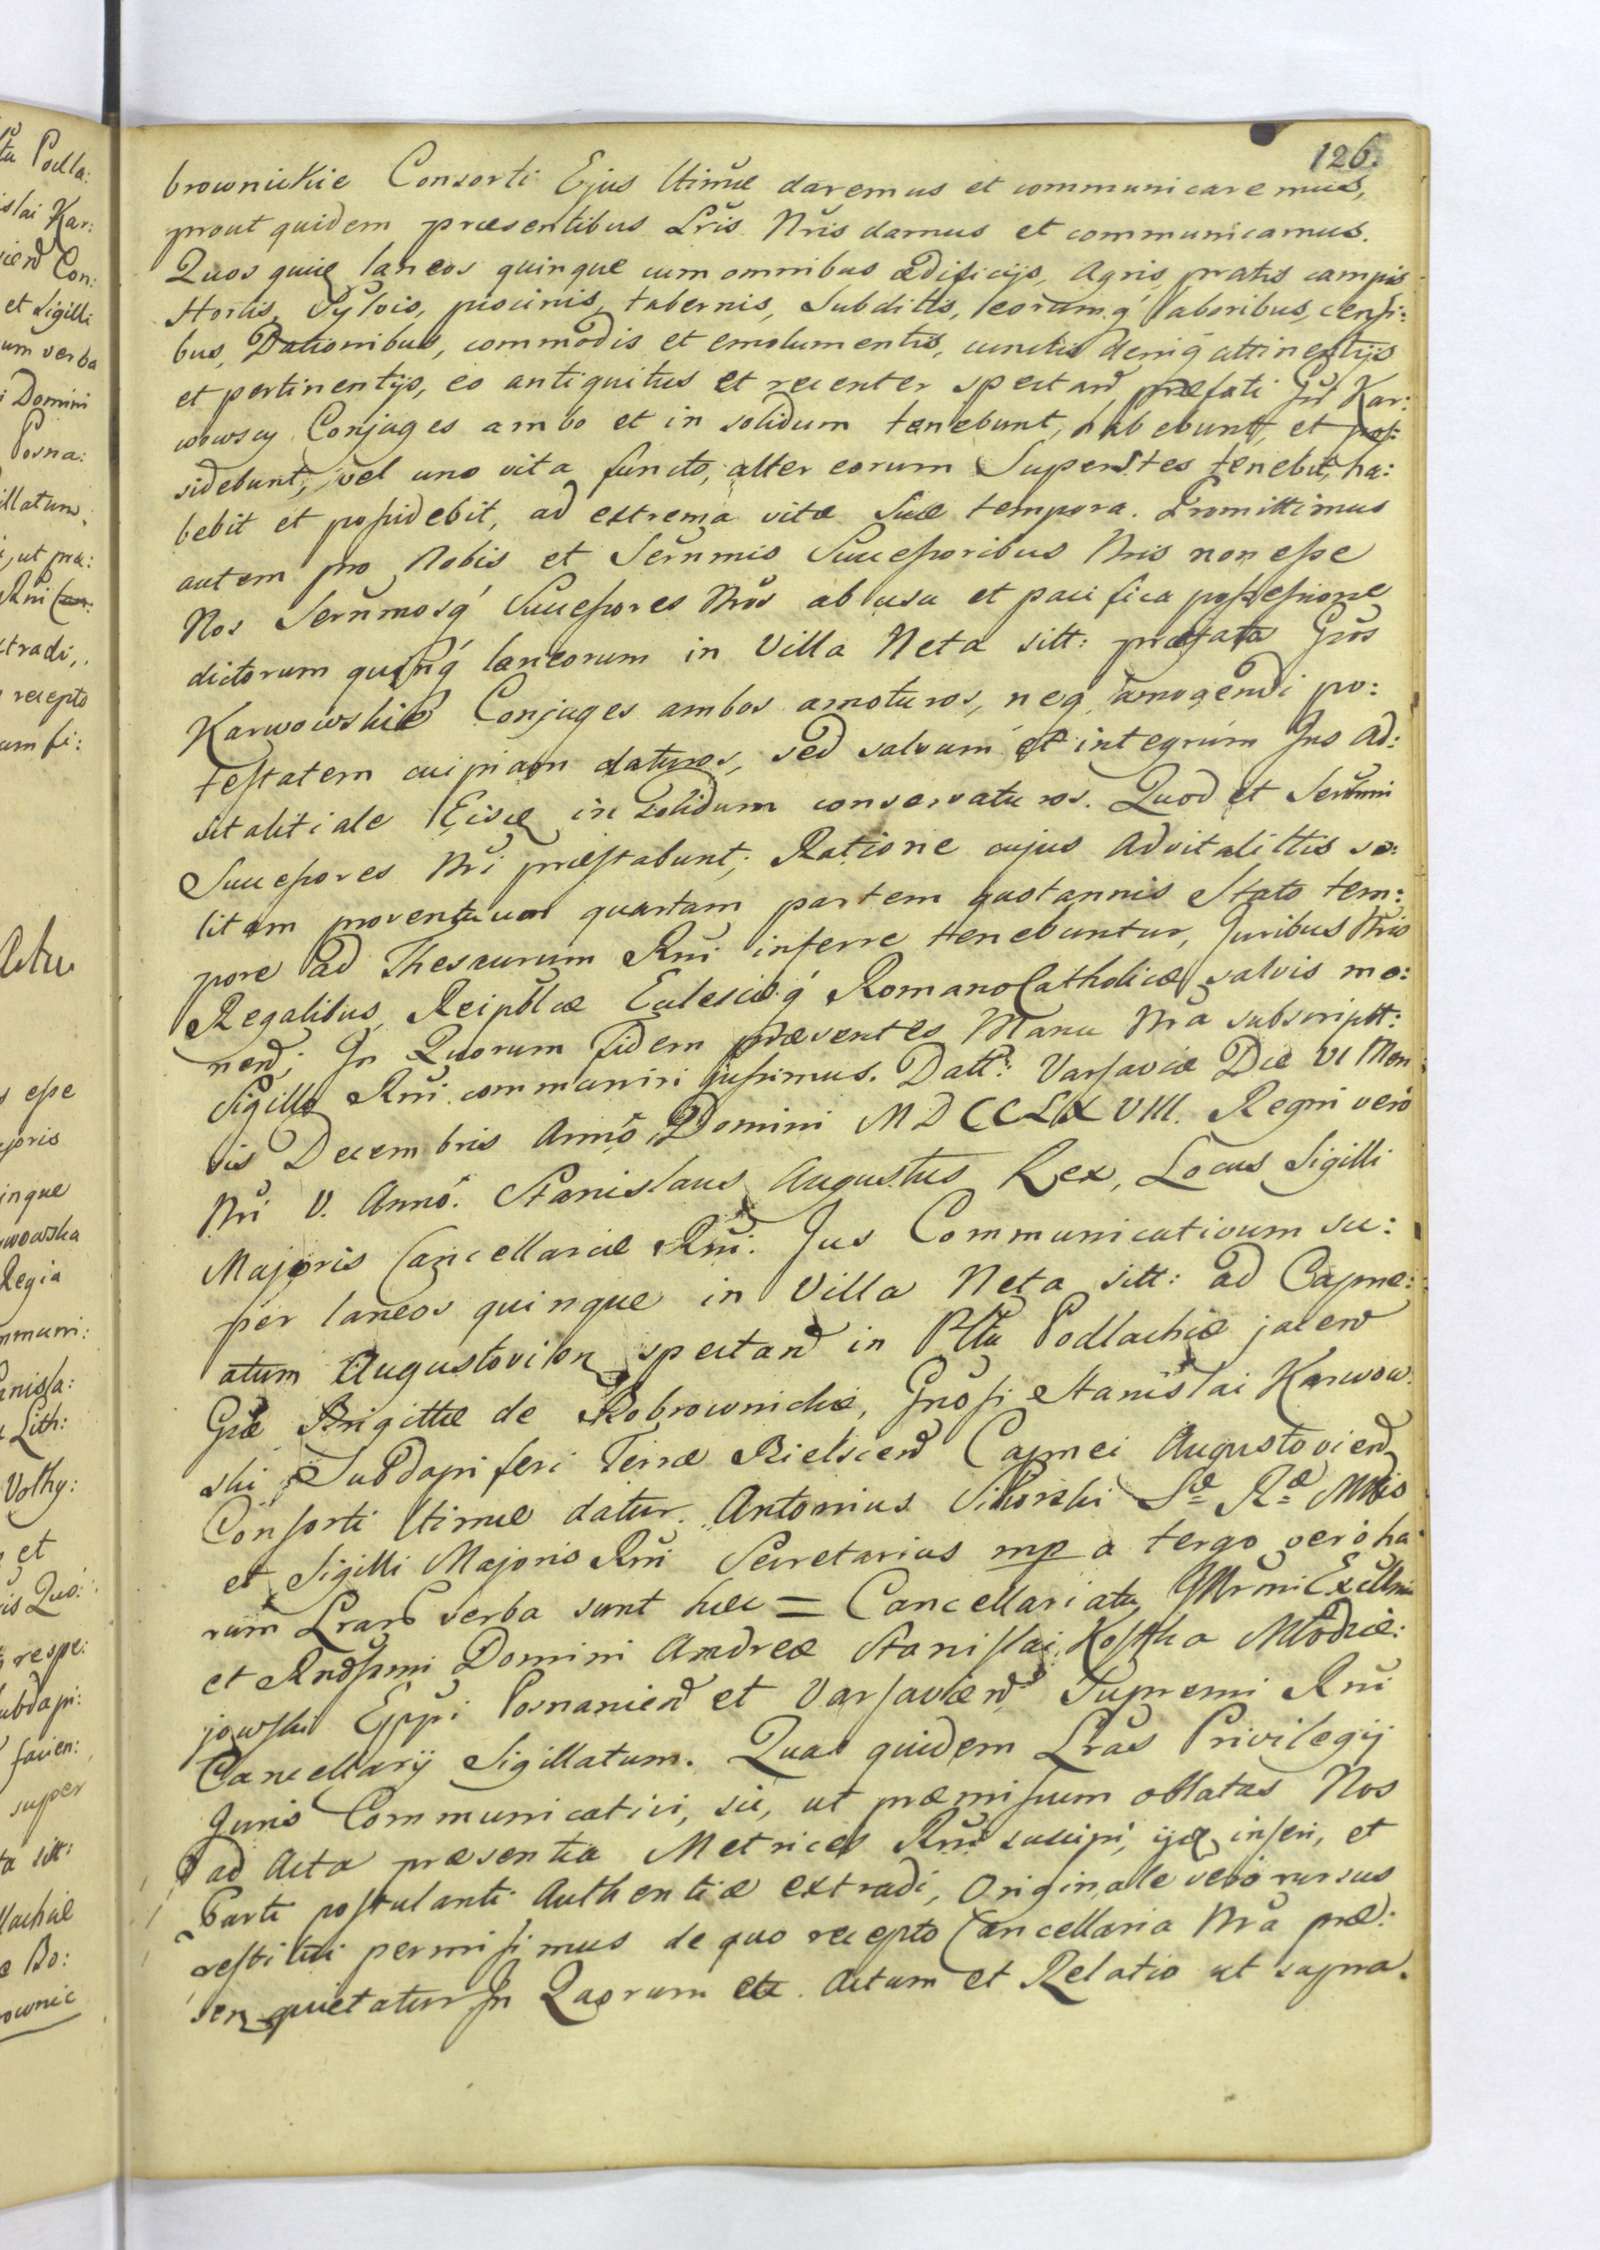 126.
brownickie Consorti Ejus ltimæ daremus et communicaremus,
prout quidem præsentibus Lris Nris damus et communicamus.
Quos quid laneos quinque cum omnibus ædificijs, Agris, pratis campis
Hortis, Sylvis, piscinis, tabernis, Subditis, eorumq́ laboribus, censi:
bus, Dationibus, commodis et emolumentis, cunctis deniq́ attinentijs
et pertinentijs, eo antiquitus et recenter spectan̄, præfati Gn̄i Kar:
wowscy Conjuges ambo et in solidum tenebunt, habebunt, et pos:
sidebunt, vel uno vita functo, alter eorum Superstes tenebit, ha:
bebit et possidebit, ad extrema vitæ suæ tempora. Promittimus
autem pro Nobis et Sern̄mis Successoribus Nris non esse
Nos Sernmosq́ Successores Nros ab usu et pacifica possessione
dictorum quinq́ laneorum in Villa Neta sitt: præfata Gn̄os
Karwowskie Conjuges ambos amoturos, neq́ amovendi po:
testatem cuipiam daturos, sed salvum et integrum Jus Ad:
vitalitiale Eisd in solidum conservaturos. Quod et Sern̄mi
Successores Nri præstabunt; Ratione cujus Advitalittis so:
litam proventuum quartam partem quotannis Stato tem:
pore ad Thesaurum Rn̄i inferre tenebuntur, Juribus Nris
Regalibus, Reipb̄licæ Ecclesiæq́ Romano Catholicæ salvis ma:
nen̄; In Quorum fidem præsentes Manu Nrā subscriptt:
Sigillo Rn̄i communiri jussimus. Datt: Varsaviæ Die VI Men:
sis Decembris Annō Domini MDCCLXVIII. Regni verò
Nri V. Annō. Stanislaus Augustus Rex, Locus Sigilli
Majoris Cancellariæ Rn̄i. Jus Communicativum su:
per laneos quinque in Villa Neta sitt: ad Capne:
atum Augustovien̄ spectan̄ in Pttu Podlachiæ jacen̄
Gn̄æ Brigittæ de Bobrownickie, Gn̄osi Stanislai Karwow:
ski Subdapiferi Terræ Bielscen̄ Capnei Augustovien̄
Consorti ltimæ datur. Antonius Sikorski Sæ Ræ Mttis
et Sigilli Majoris Rn̄i Secretarius mp a tergo verò ha
rum Lrarū verba sunt hæc = Cancellariatu Illr̄mi Excellmi
et Rndssmi Domini Andreæ Stanislai Kostka Młodzie:
jowski Eppi Posnanien̄ et Varsavien̄ Supremi Rn̄i
Cancellarij Sigillatum. Quas quidem Lrās Privilegij
Juris Communicativi, sic, ut præmissum oblatas Nos
ad Acta præsentia Metrices Rn̄i suscipi, ijsd̄ inseri, et
Parti postulanti Authenticæ extradi, Originale verò rursus
restitui permisimus de quo recepto Cancellaria Nrā præ:
sen̄ quietatur In Quorum etc. Actum et Relatio ut supra.